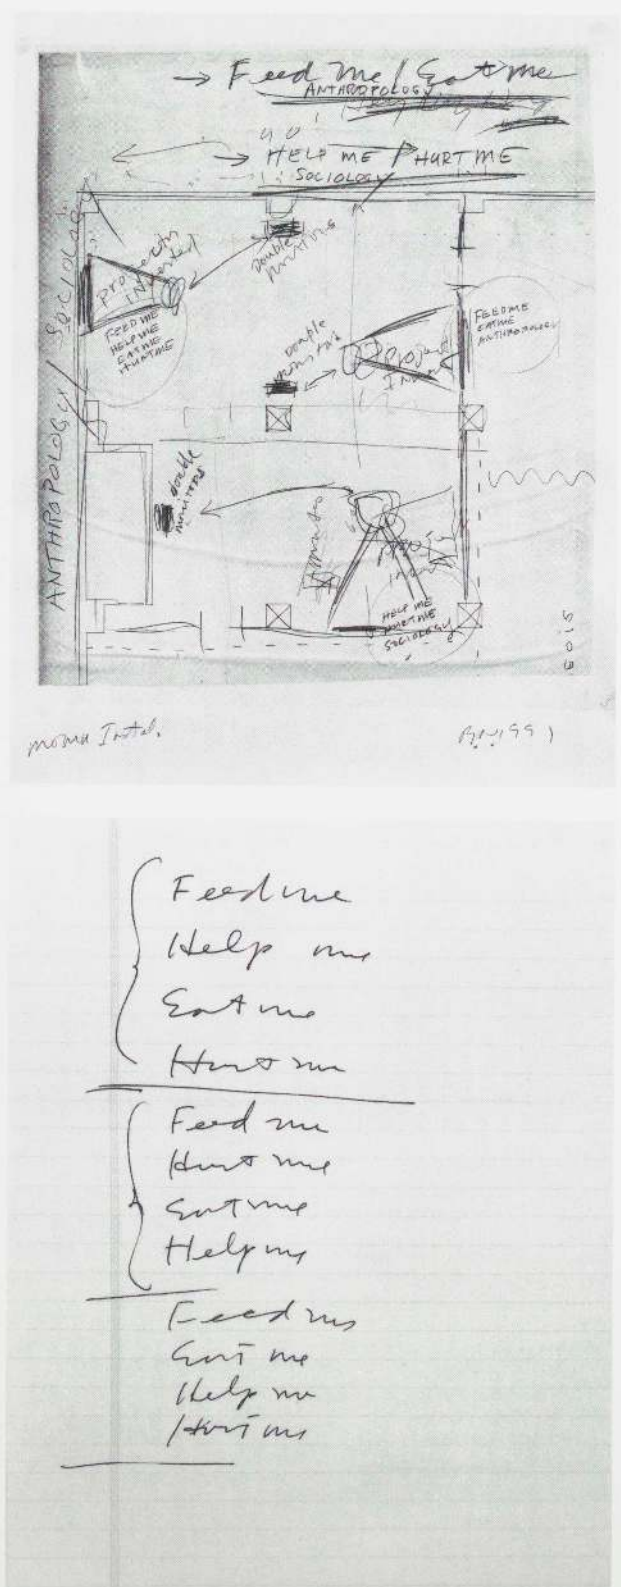 → Feed Me / Eat me
ANTHROPOLOGY
→ HELP ME / HURT ME
SOCIOLOGY
ANTHROPOLOGY / SOCIOLOGY
Projector
Inverted
FEED ME
HELP ME
EAT ME
HURT ME
Double
monitors
Double
monitors
FEED ME
EAT ME
ANTHROPOLOGY
double
monitors
HELP ME
HURT ME
SOCIOLOGY
moma Instal.
B.N. 1991
Feed me
Help me
Eat me
Hurt me
Feed me
Hurt me
Eat me
Help me
Feed me
Eat me
Help me
Hurt me